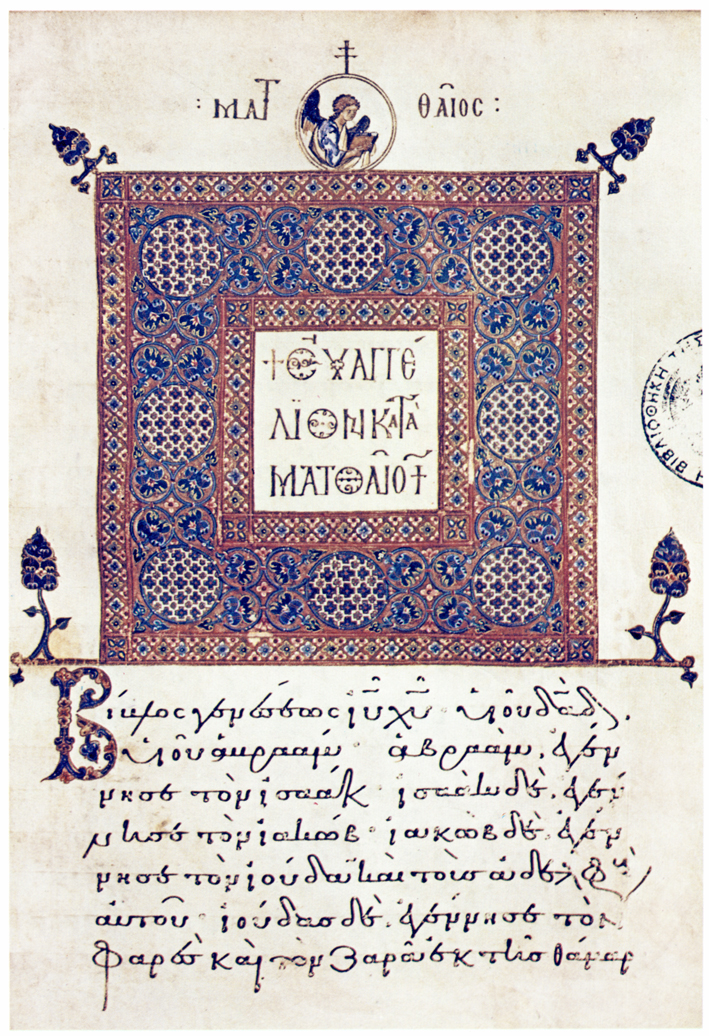 : ΜΑΤ ΘΑῖΟC :
+ ΕΥΑΓΓΕ
ΛΙΟΝ ΚΑΤᾺ
ΜΑΤΘΑῖΟΝ
Βίβλος γενέσεως ἰῦ χῦ υἱοῦ δᾱδ,
υἱοῦ ἀβραάμ· ἀβραὰμ, ἐγέν
νησε τὸν ἰσαάκ· ἰσαὰκ δὲ, ἐγέν
νησε τὸν ἰακώβ· ἰακὼβ δὲ, ἐγέν
νησε τὸν ἰούδαν καὶ τοὺς ἀδελφοὺς
αὐτοῦ· ἰούδας δὲ, ἐγέννησε τὸν
Φαρὲς καὶ τὸν Ζαρὰ ἐκ τῆς θάμαρ
ΒΙΒΛΙΟΘΗΚΗ ΤΗΣ